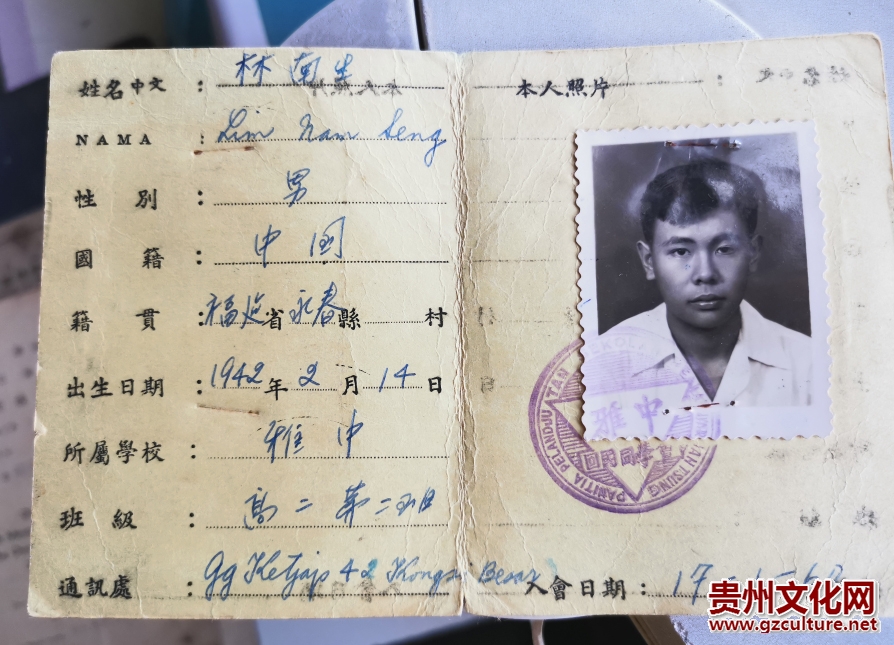 姓名中文：林南生
NAMA : Lim Nam Seng
性 別：男
國 籍：中国
籍 貫：福建省永春縣 村
出生日期：1942年2月14日
所屬學校：雅中
班 級：高二第二班
通訊處：Gg Ketjap 42 Kongsi Besar
本人照片：
雅中
PANITIA PELANDJU
TAN
TSUNG
入會日期：17-1-60
贵州文化网
www.gzculture.net